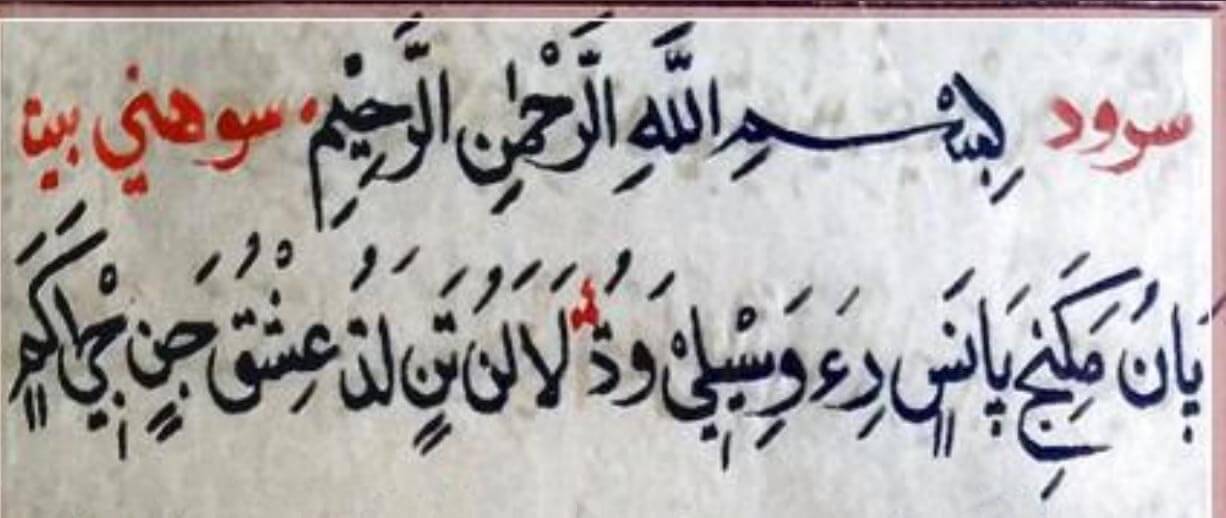 سرود بِسْمِ اللَّهِ الرَّحْمٰنِ الرَّحِيْمِ سوهني بيتا
پَانُ مَکَنِجِ پَانَسٍ رِءَ وَسِيْلِيْ وَڎُ لَالَنُ تَنٍ لَڎُ عِشْقُ جَنٍ جِيْ اکَمٍ